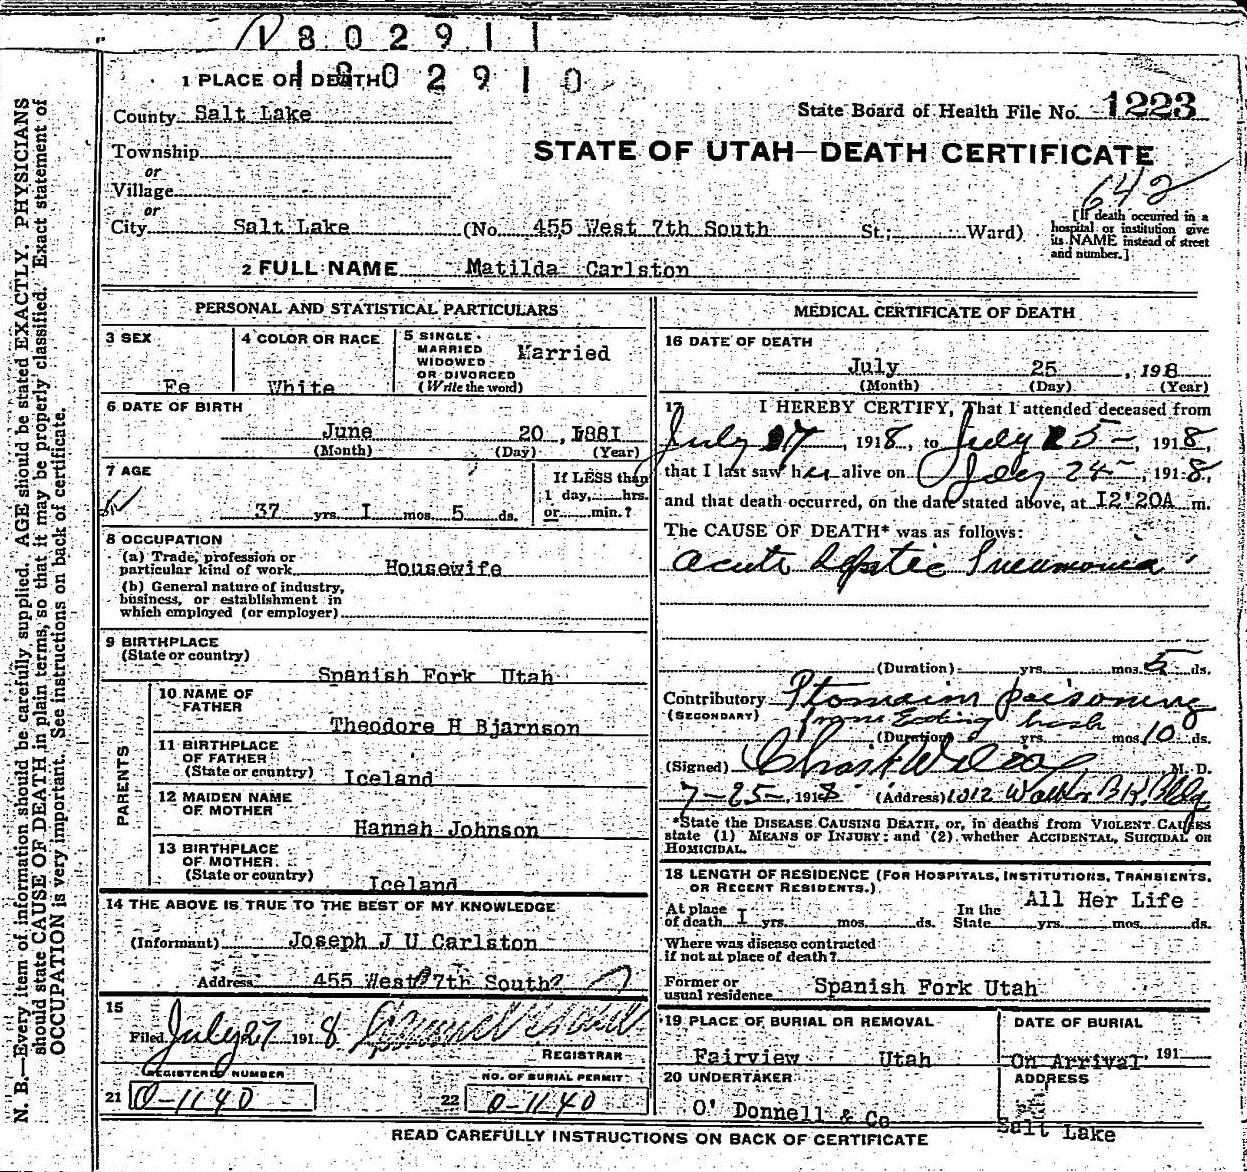 1802911
1802910
1 PLACE OF DEATH
County Salt Lake
State Board of Health File No. 1223
Township
or
Village
or
STATE OF UTAH—DEATH CERTIFICATE
642
City Salt Lake (No. 455 West 7th South St.; Ward)
[If death occurred in a
hospital or institution give
its NAME instead of street
and number.]
2 FULL NAME Matilda Carlston
PERSONAL AND STATISTICAL PARTICULARS
3 SEX
Fe
4 COLOR OR RACE
White
5 SINGLE
MARRIED
WIDOWED
OR DIVORCED
(Write the word)
Married
6 DATE OF BIRTH
June 20, 1881
(Month) (Day) (Year)
7 AGE
37 yrs. I mos. 5 ds.
If LESS than
1 day, hrs.
or min.?
8 OCCUPATION
(a) Trade, profession or
particular kind of work Housewife
(b) General nature of industry,
business, or establishment in
which employed (or employer)
9 BIRTHPLACE
(State or country)
Spanish Fork Utah
PARENTS
10 NAME OF
FATHER
Theodore H Bjarnson
11 BIRTHPLACE
OF FATHER
(State or country) Iceland
12 MAIDEN NAME
OF MOTHER
Hannah Johnson
13 BIRTHPLACE
OF MOTHER
(State or country)
Iceland
14 THE ABOVE IS TRUE TO THE BEST OF MY KNOWLEDGE
(Informant) Joseph J U Carlston
Address 455 West 7th South?
15
Filed July 27 1918
REGISTRAR
REGISTERED NUMBER
21 0-1140
NO. OF BURIAL PERMIT
22 0-1140
MEDICAL CERTIFICATE OF DEATH
16 DATE OF DEATH
July 25, 1918
(Month) (Day) (Year)
17 I HEREBY CERTIFY, That I attended deceased from
July 17, 1918, to July 25-, 1918,
that I last saw her alive on July 24-, 191-8,
and that death occurred, on the date stated above, at I2'20A m.
The CAUSE OF DEATH* was as follows:
Acute Septic Pneumonia
(Duration) yrs. mos. 5 ds.
Contributory Ptomain poisoning
(SECONDARY) from Eating
(Duration) yrs. mos. 10 ds.
(Signed) M. D.
7-25-, 1918 (Address) 1012 Walker BK. Bldg
*State the DISEASE CAUSING DEATH, or, in deaths from VIOLENT CAUSES
state (1) MEANS OF INJURY; and (2) whether ACCIDENTAL, SUICIDAL OR
HOMICIDAL.
18 LENGTH OF RESIDENCE (FOR HOSPITALS, INSTITUTIONS, TRANSIENTS,
OR RECENT RESIDENTS.)
All Her Life
At place
of death I yrs. mos. ds.
In the
State yrs. mos. ds.
Where was disease contracted
if not at place of death?
Former or
usual residence Spanish Fork Utah
19 PLACE OF BURIAL OR REMOVAL
Fairview Utah
DATE OF BURIAL
On Arrival 191
20 UNDERTAKER
O' Donnell & Co
ADDRESS
Salt Lake
READ CAREFULLY INSTRUCTIONS ON BACK OF CERTIFICATE
N. B.—Every item of information should be carefully supplied. AGE should be stated EXACTLY. PHYSICIANS
should state CAUSE OF DEATH in plain terms, so that it may be properly classified. Exact statement of
OCCUPATION is very important. See instructions on back of certificate.